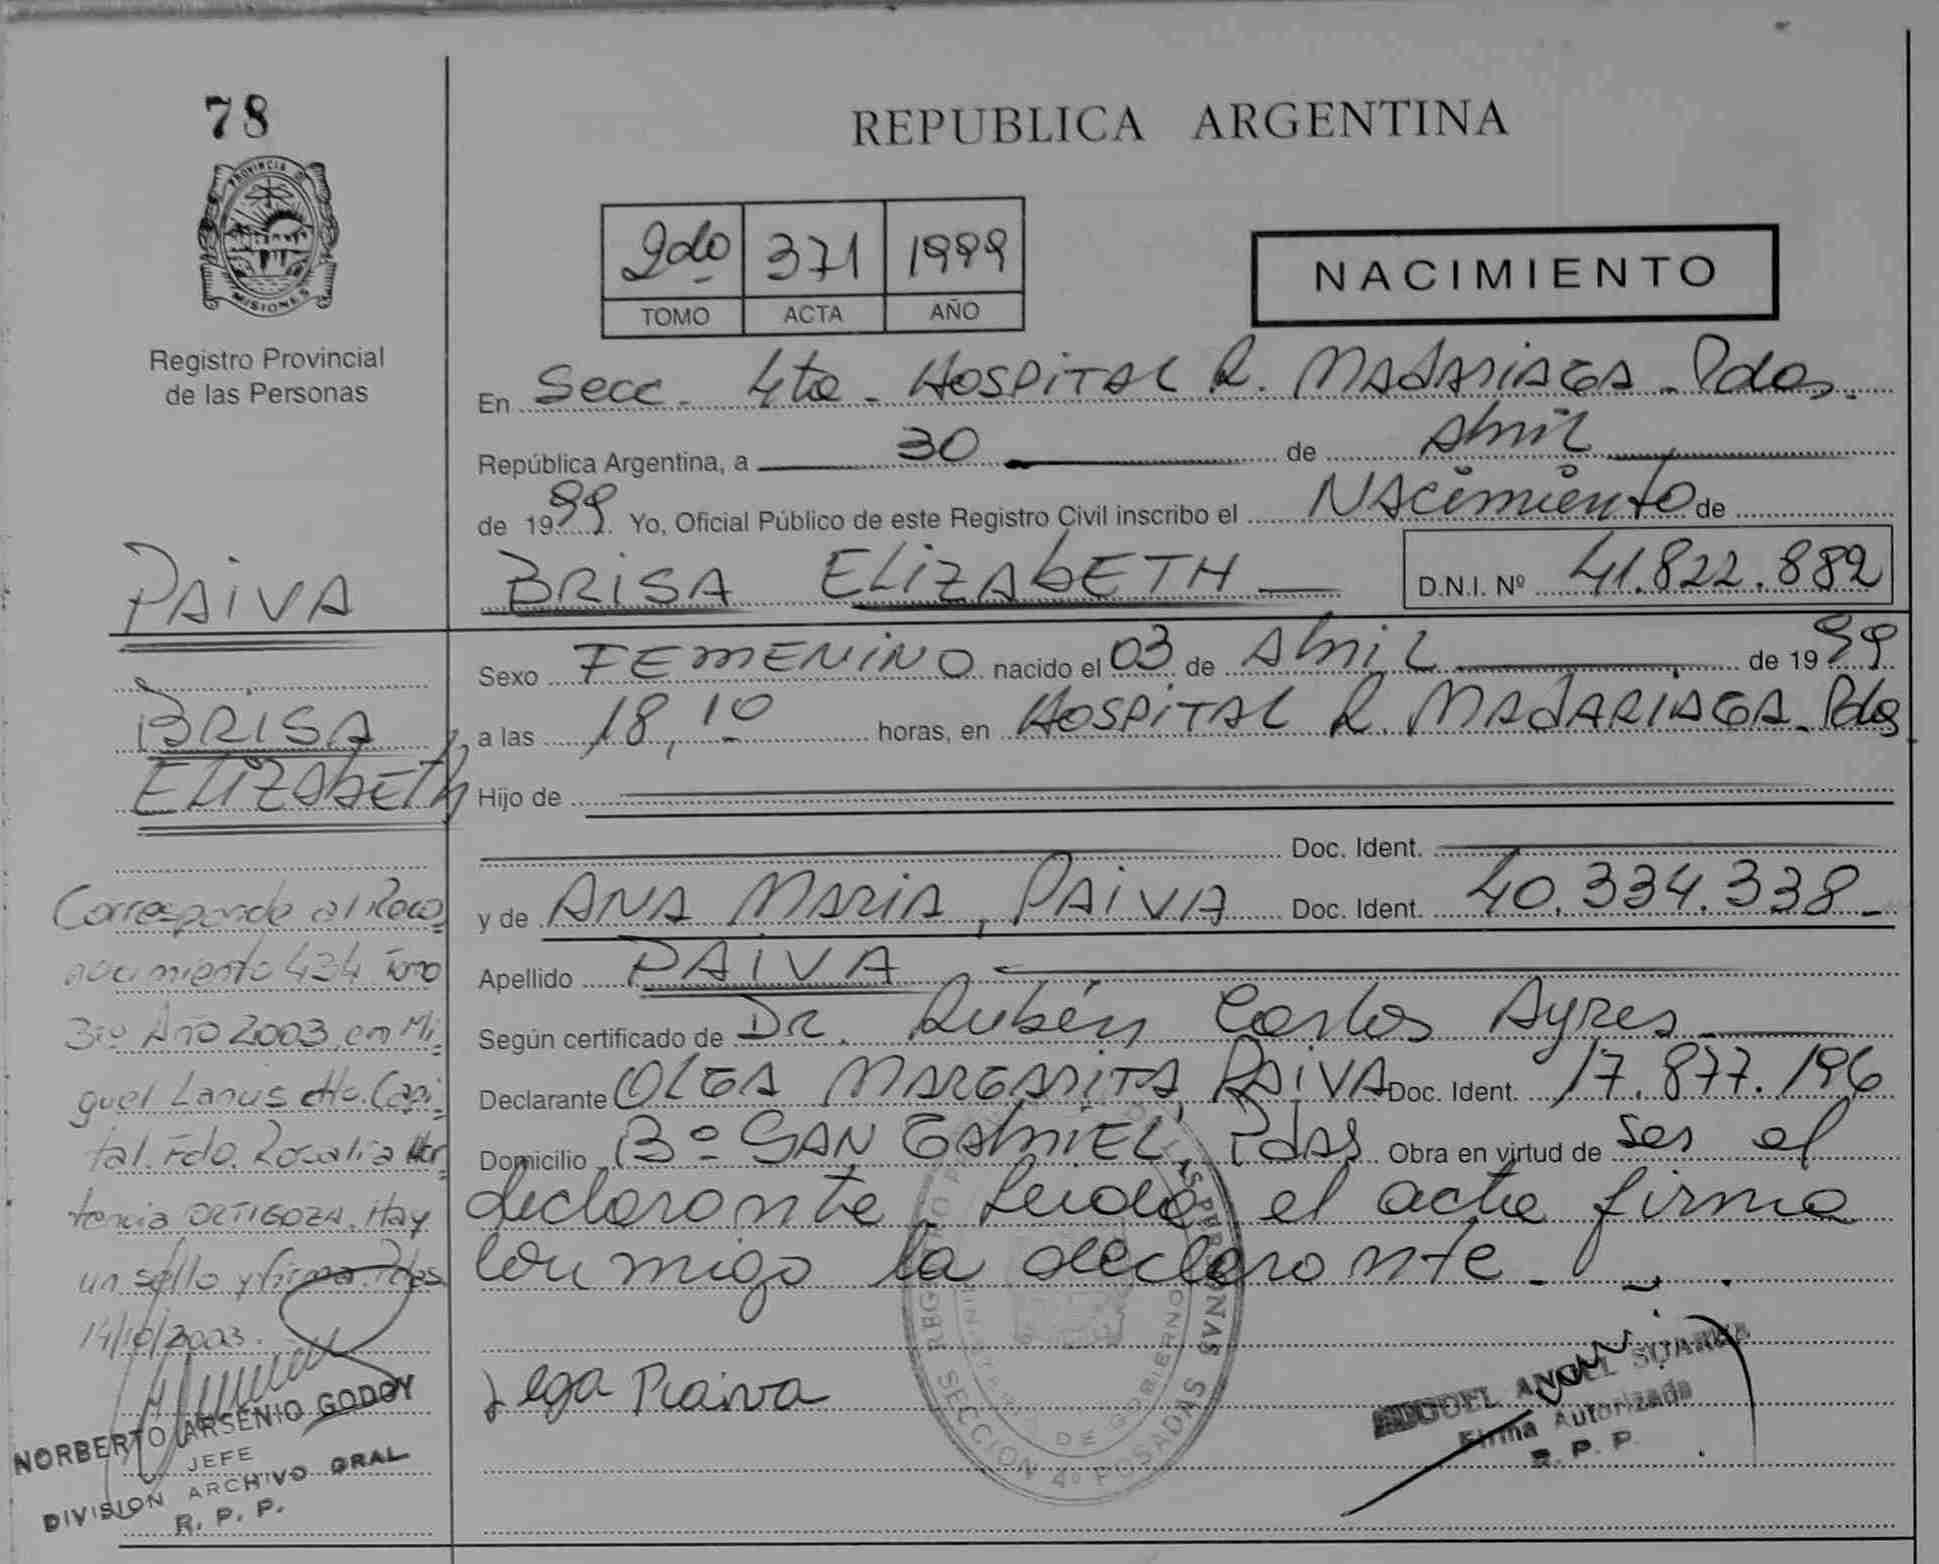 78
PROVINCIA DE
MISIONES
Registro Provincial
de las Personas
REPUBLICA ARGENTINA
2do 371 1999
TOMO ACTA AÑO
NACIMIENTO
En Secc. 4ta - HOSPITAL R. MADARIAGA - Pdas.
República Argentina, a 30 de Abril
de 1999. Yo, Oficial Público de este Registro Civil inscribo el NAcimiento de
BRISA ELIZAbETH D.N.I. Nº 41.822.882
Sexo FEMENINO nacido el 03 de Abril de 1999
a las 18,10 horas, en HOSPITAL R. MADARIAGA - Pdas
Hijo de
Doc. Ident.
y de ANA MARIA, PAIVA Doc. Ident. 40.334.338-
Apellido PAIVA
Según certificado de DR. Rubén Carlos Ayres
Declarante OLGA MARGARITA PAIVA Doc. Ident. 17.877.196
Domicilio Bº SAN GABRIEL, Pdas Obra en virtud de ser el
declarante. Leida el acta firma
conmigo la declarante.
PAIVA
BRISA
ELIZAbETH
Corresponde al Reco
nocimiento 434 Tomo
3ro Año 2003 en Mi
guel Lanus dto. Capi
tal. Fdo. Rosalia Hor
tencia ORTIGOZA. Hay
un sello y firma. Pdas
14/10/2003.
NORBERTO ARSENIO GODOY
JEFE
DIVISION ARCHIVO GRAL
R. P. P.
Paiva
SECCION 4º POSADAS
DE GOBIERNO
MIGUEL ANGEL SUAREZ
Firma Autorizada
R. P. P.